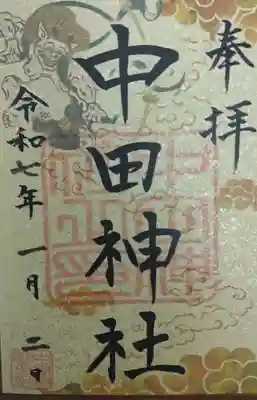 奉拝
中田神社
令和七年一月二日